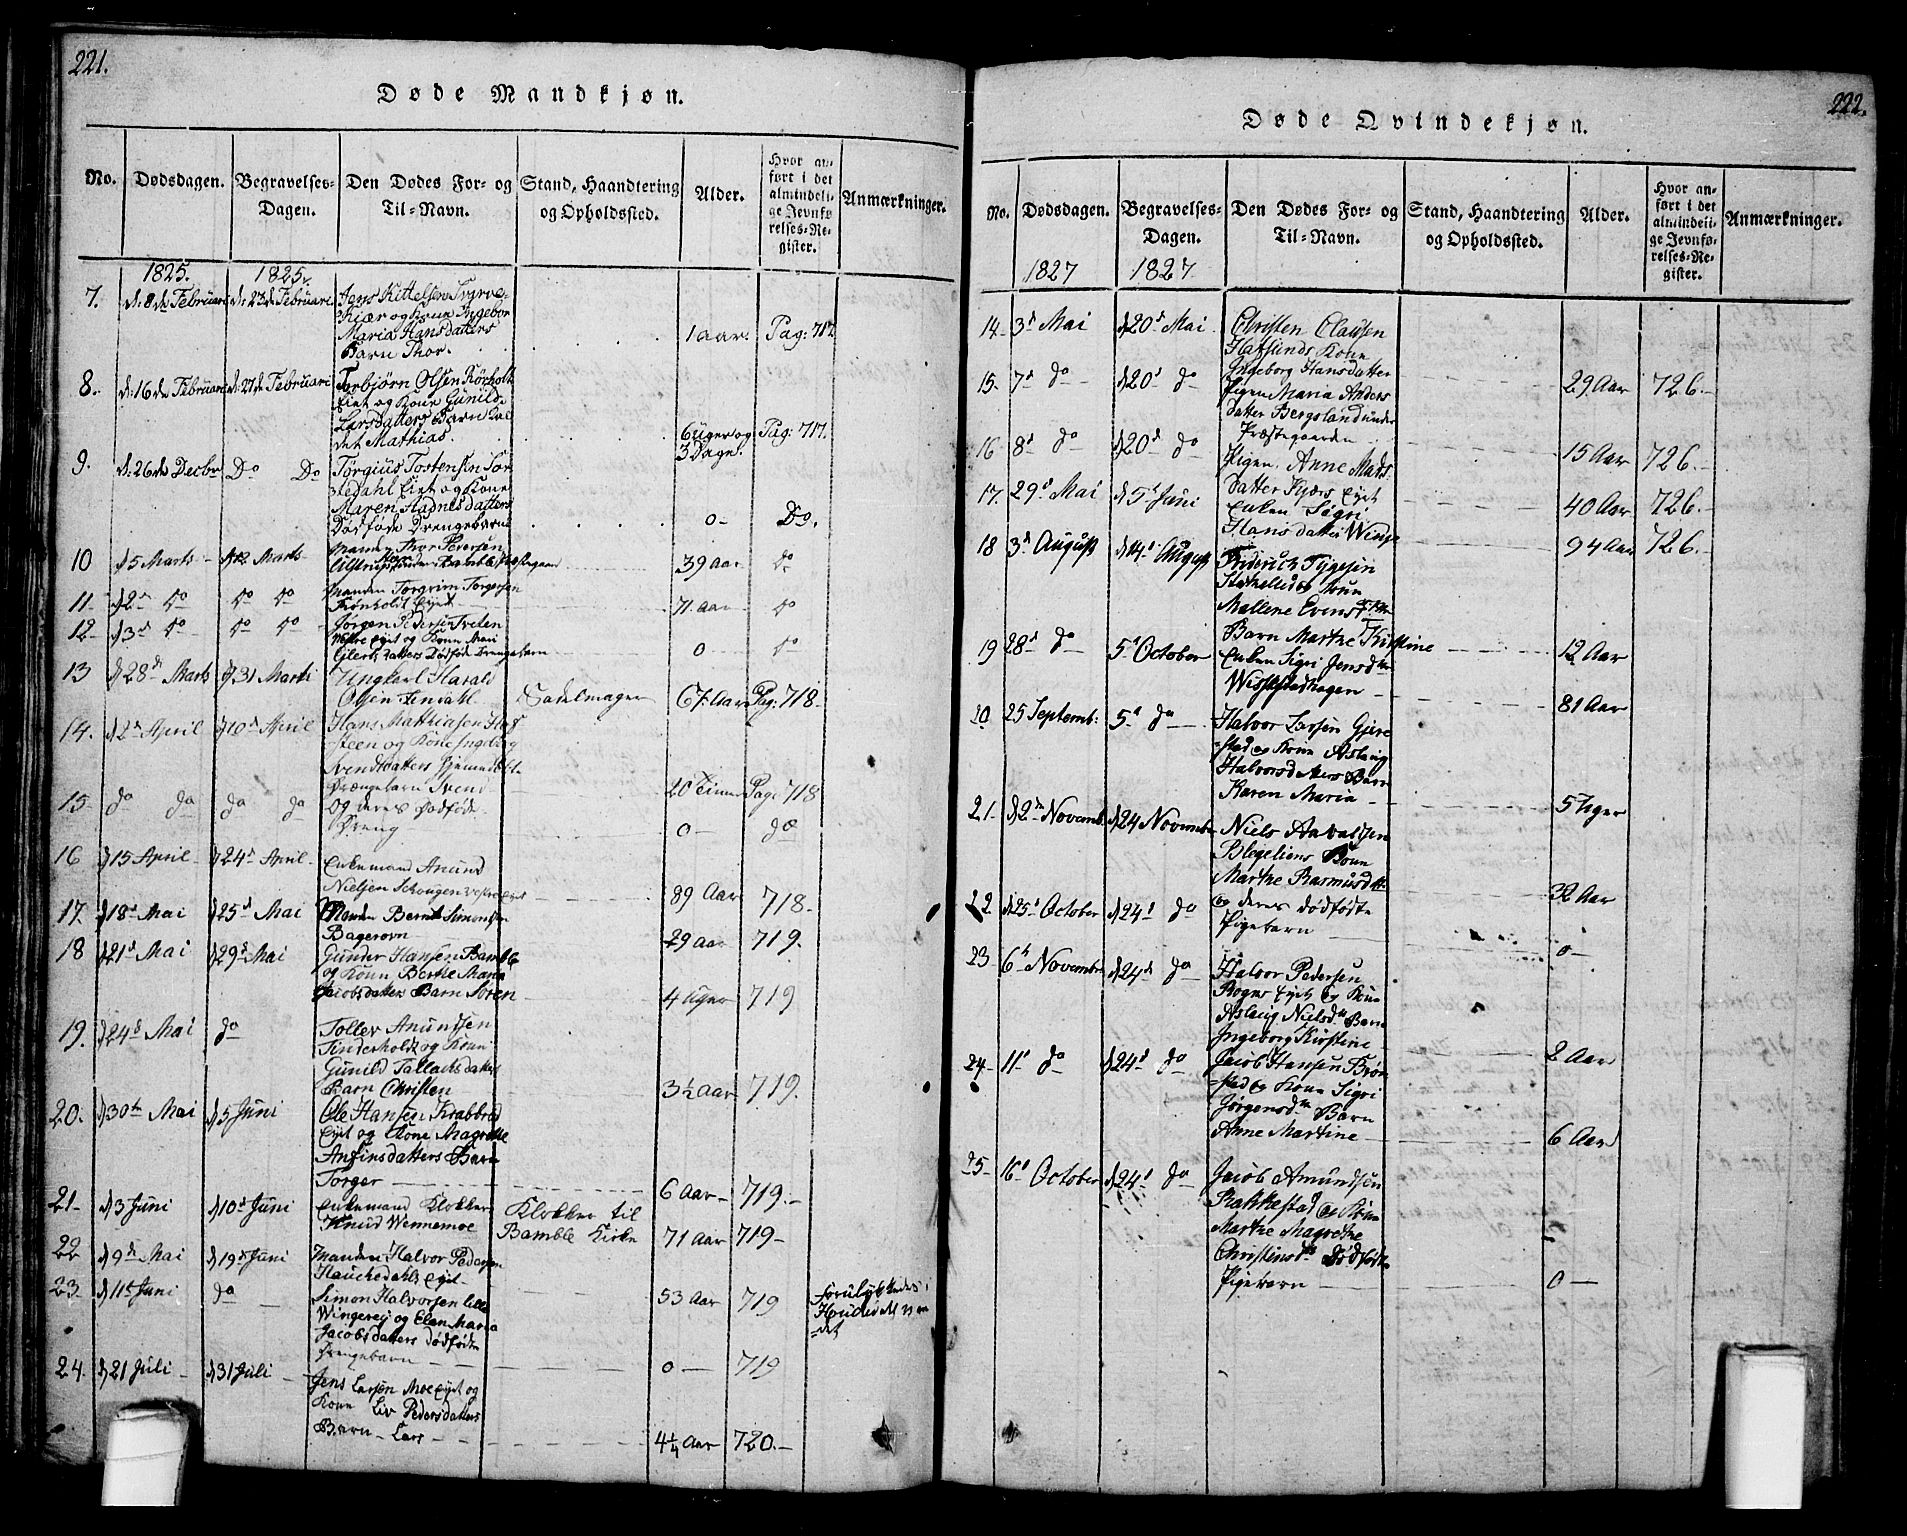 221.
Døde Mandkjøn.
No. Dødsdagen. Begravelses-Dagen. Den Dødes For- og Til-Navn. Stand, Haandtering og Opholdssted. Alder. Hvor anført i det almindelige Jevnførelses-Register. Anmærkninger.
1825. 1825.
7. d: 8de Februari d: 27de Februari Jens Kittelsen
Kiær og Kone Ingebor
Maria Hansdatters
Barn Thor. 1 aar. Pag: 717.
8. d: 16de Februari d: 27de Februari Torbjørn Olsen Rörholt
Eiet og Kone Gunilde
Larsdatters Barn
det Mathias. 6 Uger og 3 Dage. Pag: 717.
9. d: 26de Decbr Do Do Törgius Tostensen
Eiet og Kone
Maren Aadnesdatters
Dödföde Drengebarn 0- Do.
10 d 5 Marts - d 12 Marts Manden Thor Pedersen
39 aar do
11- d 2den do do do Manden Torgrim Torgersen
Trönholdt Eyet 71 aar do
12- d 3die do do do Jørgen Pedersen Tveten
Vestre Eyet og Kone Mari
Eilerts datters Dödföde Drengebarn 0 do
13 d 28de Marts d 31 Marti Ungkarl Harald
Olsen Sadelmager 67 aar Pag: 718.
14. d 2den April d 10de April Hans Mathiasen
steen og Kone Ingeborg
Svendsdatters
Drengebarn Svend 20 Timer Pag: 718
15- do do do do Og deres Dødføde
Dreng 0- do
16 d 15 April d 24de April Enkemand Anund
Nielsen Schougen 89 Aar 718.
17. d 18de Mai d 25de Mai Manden Bernt Simonsen
Bagerovn 29 aar 719.
18 d 21de Mai d 29de Mai Gunder Hansen Bamble
og Kone Berthe Maria
Jacobsdatters Barn Sören 4 Uger 719
19. d 24de Mai do Tollev Anundsen
Tinderholdt og Kone
Gunild Tallachsdatters
Barn Christen 3½ aar 719.
20. d 30te Mai d 5 Juni Ole Hansen Krabberød
Eyet og Kone Magrethe
Anfinsdatters Barn
Torger 6 Aar - 719.
21- d 3 Juni d 10de Juni Enkemand Klokker
Knud Wennemoe Klokker til
Bamble Kirke 71 Aar 719-
22 d 9de Mai d 19de Juni Manden Halvor Pedersen
Hauckedahls Eyet 53 Aar 719 Forulykkedes i
23. d 11te Juni do Simon Halvorsen lille
Wingerej og Elen Maria
Jacobsdatters dödfödte
Drengebarn 0- 719
24. d 21 Juli d 31 Juli Jens Larsen Moe Eyet og
Kone Liv Pedersdatters
Barn - Lars 4¼ Aar 720.
222.
Døde Qvindekjøn.
No. Dødsdagen. Begravelses-Dagen. Den Dødes For- og Til-Navn. Stand, Haandtering og Opholdssted. Alder. Hvor anført i det almindelige Jevnførelses-Register. Anmærkninger.
1827 1827
14- 3d Mai d 20d Mai Christen Clausen
Hafsunds Kone
Ingeborg Hansdatter 29 Aar 726.
15. 7d do d 20d do Pigen Maria Anders
datter Bergsland under
Præstegaarden 15 Aar 726.
16 8d do d 20d do Pigen Anne Mads-
datter Kjærs Eyet 40 Aar 726.
17. 29d Mai d 5d Juni Enken Sigri
Hansdatter 94 Aar 726.
18 3d August d 14d August Friderich Tygesen
Stokkelid og Kone
Mallene Evens
Barn Marthe Kirstine 12 Aar
19 28d do 5d October Enken Sigri Jensdtr
Wissestadhagen 81 Aar
20 25 Septemb: 5d do Halvor Larsen
stad og Kone Aslaug
Halvorsdatters Barn
Karen Maria 5 Uger
21- d 2den Novemb. d 24 Novembr Niels Aavaldsen
Blegeliens Kone
Marthe Rasmusdtr 32 Aar
22. d 25d October d 24d do og deres dødfødte
Pigebarn 0-
23 6te Novembr d 24d do Halvor Pedersen
Rognes Eyet og Kone
Aslaug Nielsdtr Barn
Ingeborg Kirstine 2 Aar
24- 11d do d 24d do Jacob Hansen Brøn
stad og Kone Sigri
Jørgensdtr Barn
Anne Martine 6 Aar
25- 16d October d 24d do Jacob Amundsen
Rakkestad og Kone
Marthe Magrethe
Christensdtr Dödfödte
Pigebarn 0-